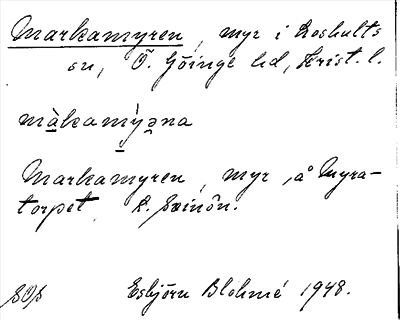 Markamyren, myr i Loshults
sn, Ö. Göinge hd, Krist. l.
màkamỳəna
Markamyren, myr, å Myra-
torpet
Esbjörn Blohmé 1948.